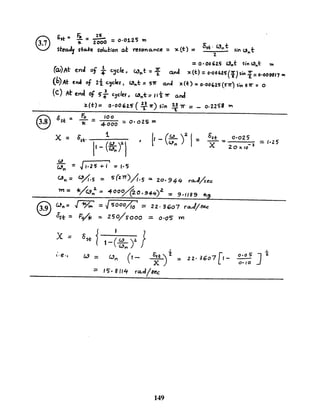 3.7 δst = F0/k = 25/2000 = 0.0125 m
Steady state solution at resonance = x(t) = δst ωn t / 2 sin ωn t
= 0.00625 ωn t sin ωn t m
(a) At end of 1/4 cycle, ωn t = π/2 and x(t) = 0.00625 (π/2) sin π/2 = 0.009817 m
(b) At end of 2 1/2 cycles, ωn t = 5π and x(t) = 0.00625 (5π) sin 5π = 0
(c) At end of 5 3/4 cycles, ωn t = 11 1/2 π and
x(t) = 0.00625 (23/2 π) sin 23/2 π = - 0.2258 m
3.8 δst = F0/k = 100/4000 = 0.025 m
X = δst · 1 / |1 - (ω/ωn)²| , |1 - (ω/ωn)²| = δst/X = 0.025 / 20 × 10⁻³ = 1.25
ω/ωn = √1.25 + 1 = 1.5
ωn = ω/1.5 = 5(2π)/1.5 = 20.944 rad/sec
m = k/ωn² = 4000/(20.944)² = 9.1189 kg
3.9 ωn = √k/m = √5000/10 = 22.3607 rad/sec
δst = F0/k = 250/5000 = 0.05 m
X = δst { 1 / 1-(ω/ωn)² }
i.e., ω = ωn (1 - δst/X)^1/2 = 22.3607 [1 - 0.05/0.10]^1/2
= 15.8114 rad/sec
149